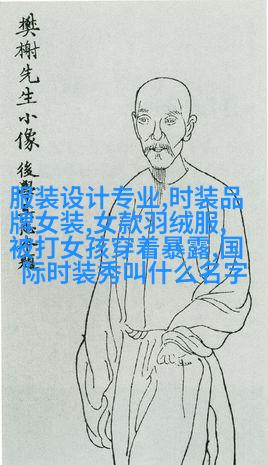 樊榭先生小像
後學
服装设计专业,时装品
牌女装,女款羽绒服,
被打女孩穿着暴露,国
际时装秀叫什么名字